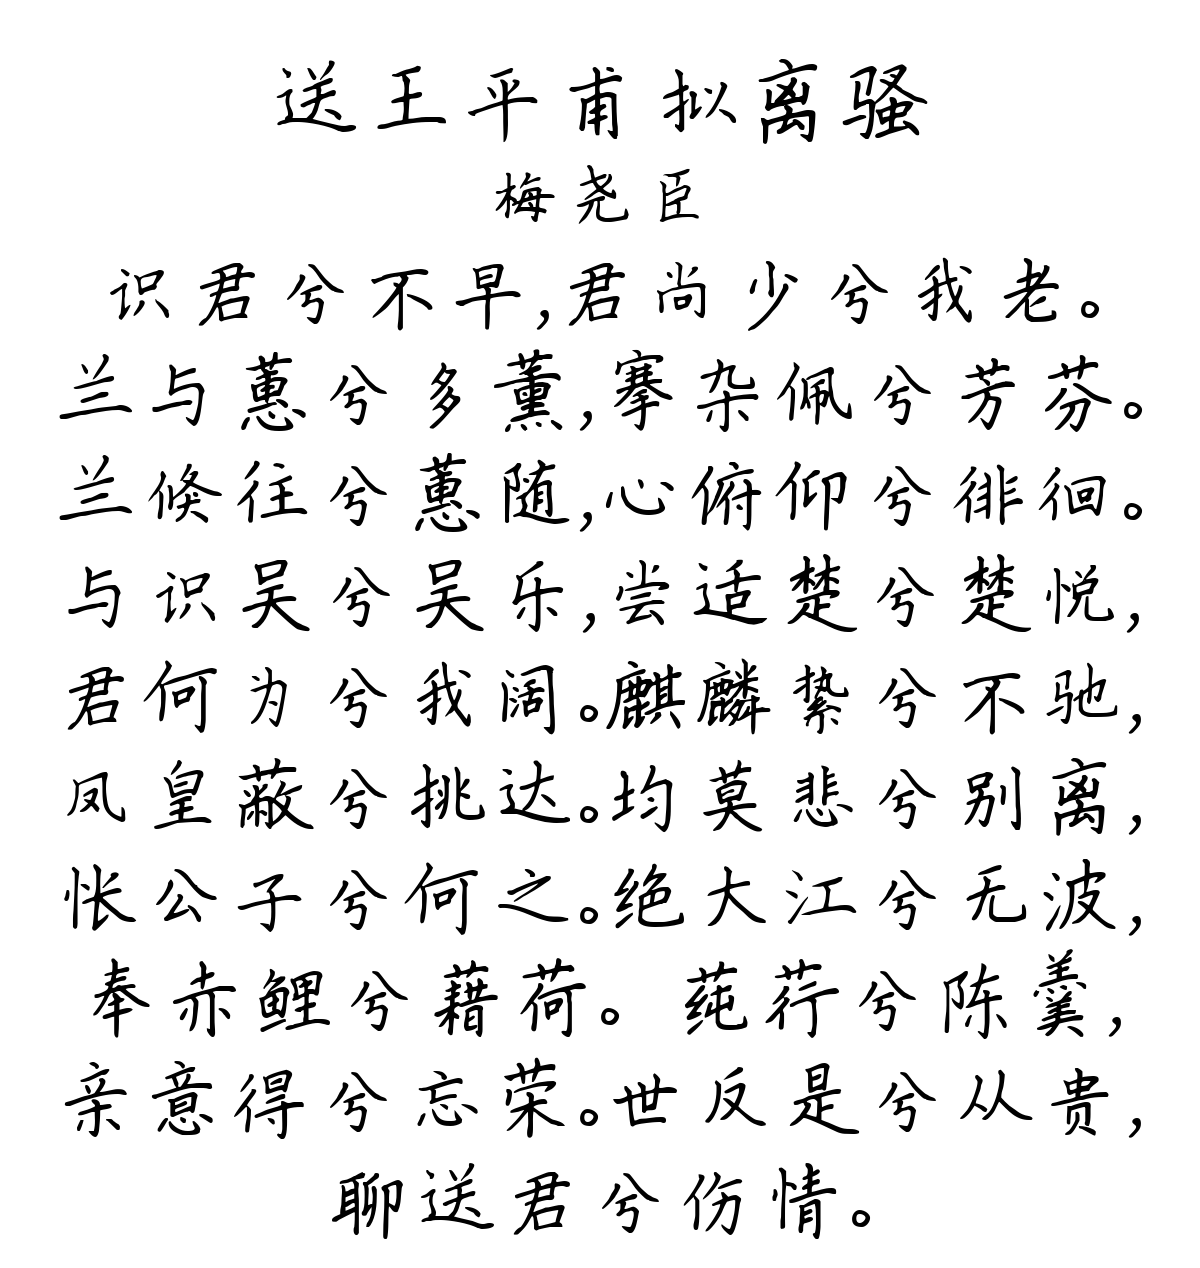 送王平甫拟离骚
梅尧臣
识君兮不早,君尚少兮我老。
兰与蕙兮多薰,搴杂佩兮芳芬。
兰倏往兮蕙随,心俯仰兮徘徊。
与识吴兮吴乐,尝适楚兮楚悦,
君何为兮我阔。麒麟絷兮不驰,
凤皇蔽兮挑达。均莫悲兮别离,
怅公子兮何之。绝大江兮无波,
奉赤鲤兮藉荷。莼荇兮陈羹,
亲意得兮忘荣。世反是兮从贵,
聊送君兮伤情。